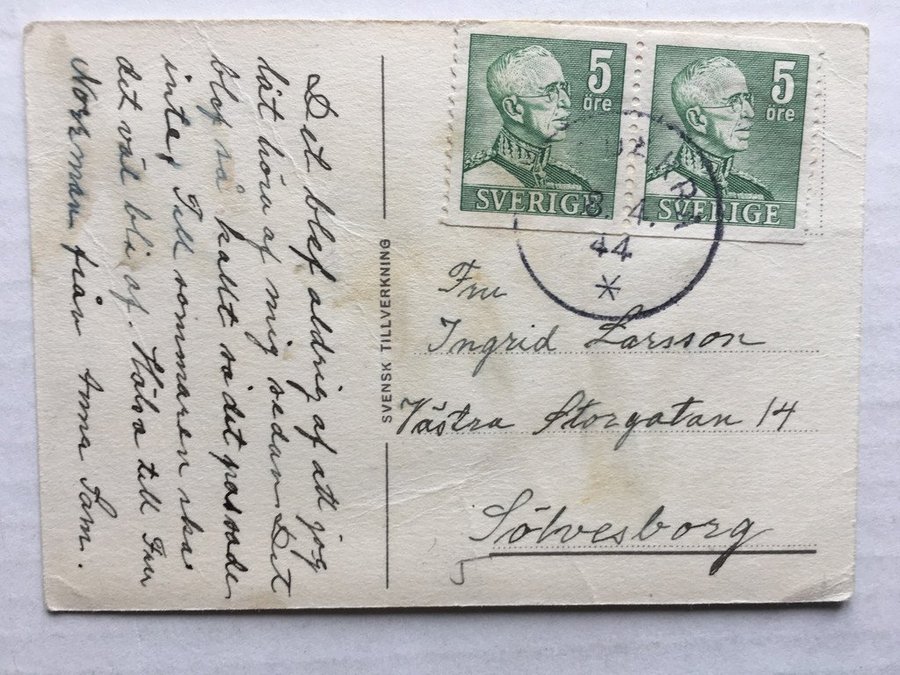 Det blef aldrig af att jag
lät höra af mig sedan Det
blef så kallt så det passade
inte, Till sommaren ska
det väl bli af. Hälsa till Fru
Norrman från Anna Sam.
SVENSK TILLVERKNING
5
öre
SVERIGE
5
öre
SVERIGE
3 4.
44
*
Fru
Ingrid Larsson
Västra Storgatan 14
Sölvesborg